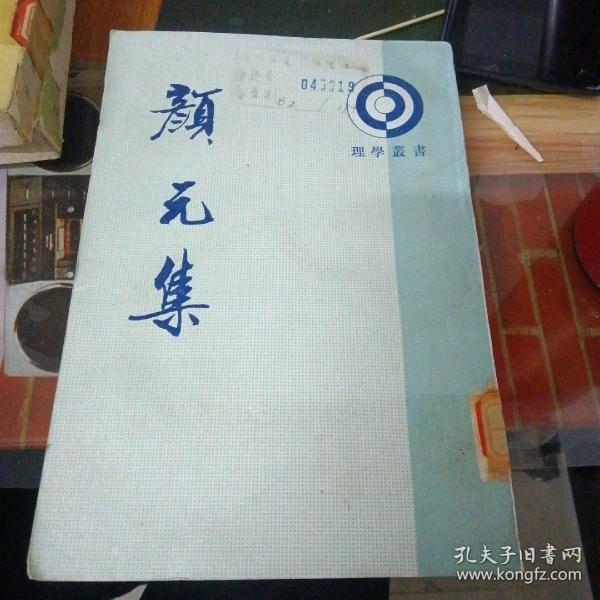 顔元集
045019
82
理學叢書
孔夫子旧书网
www.kongfz.com